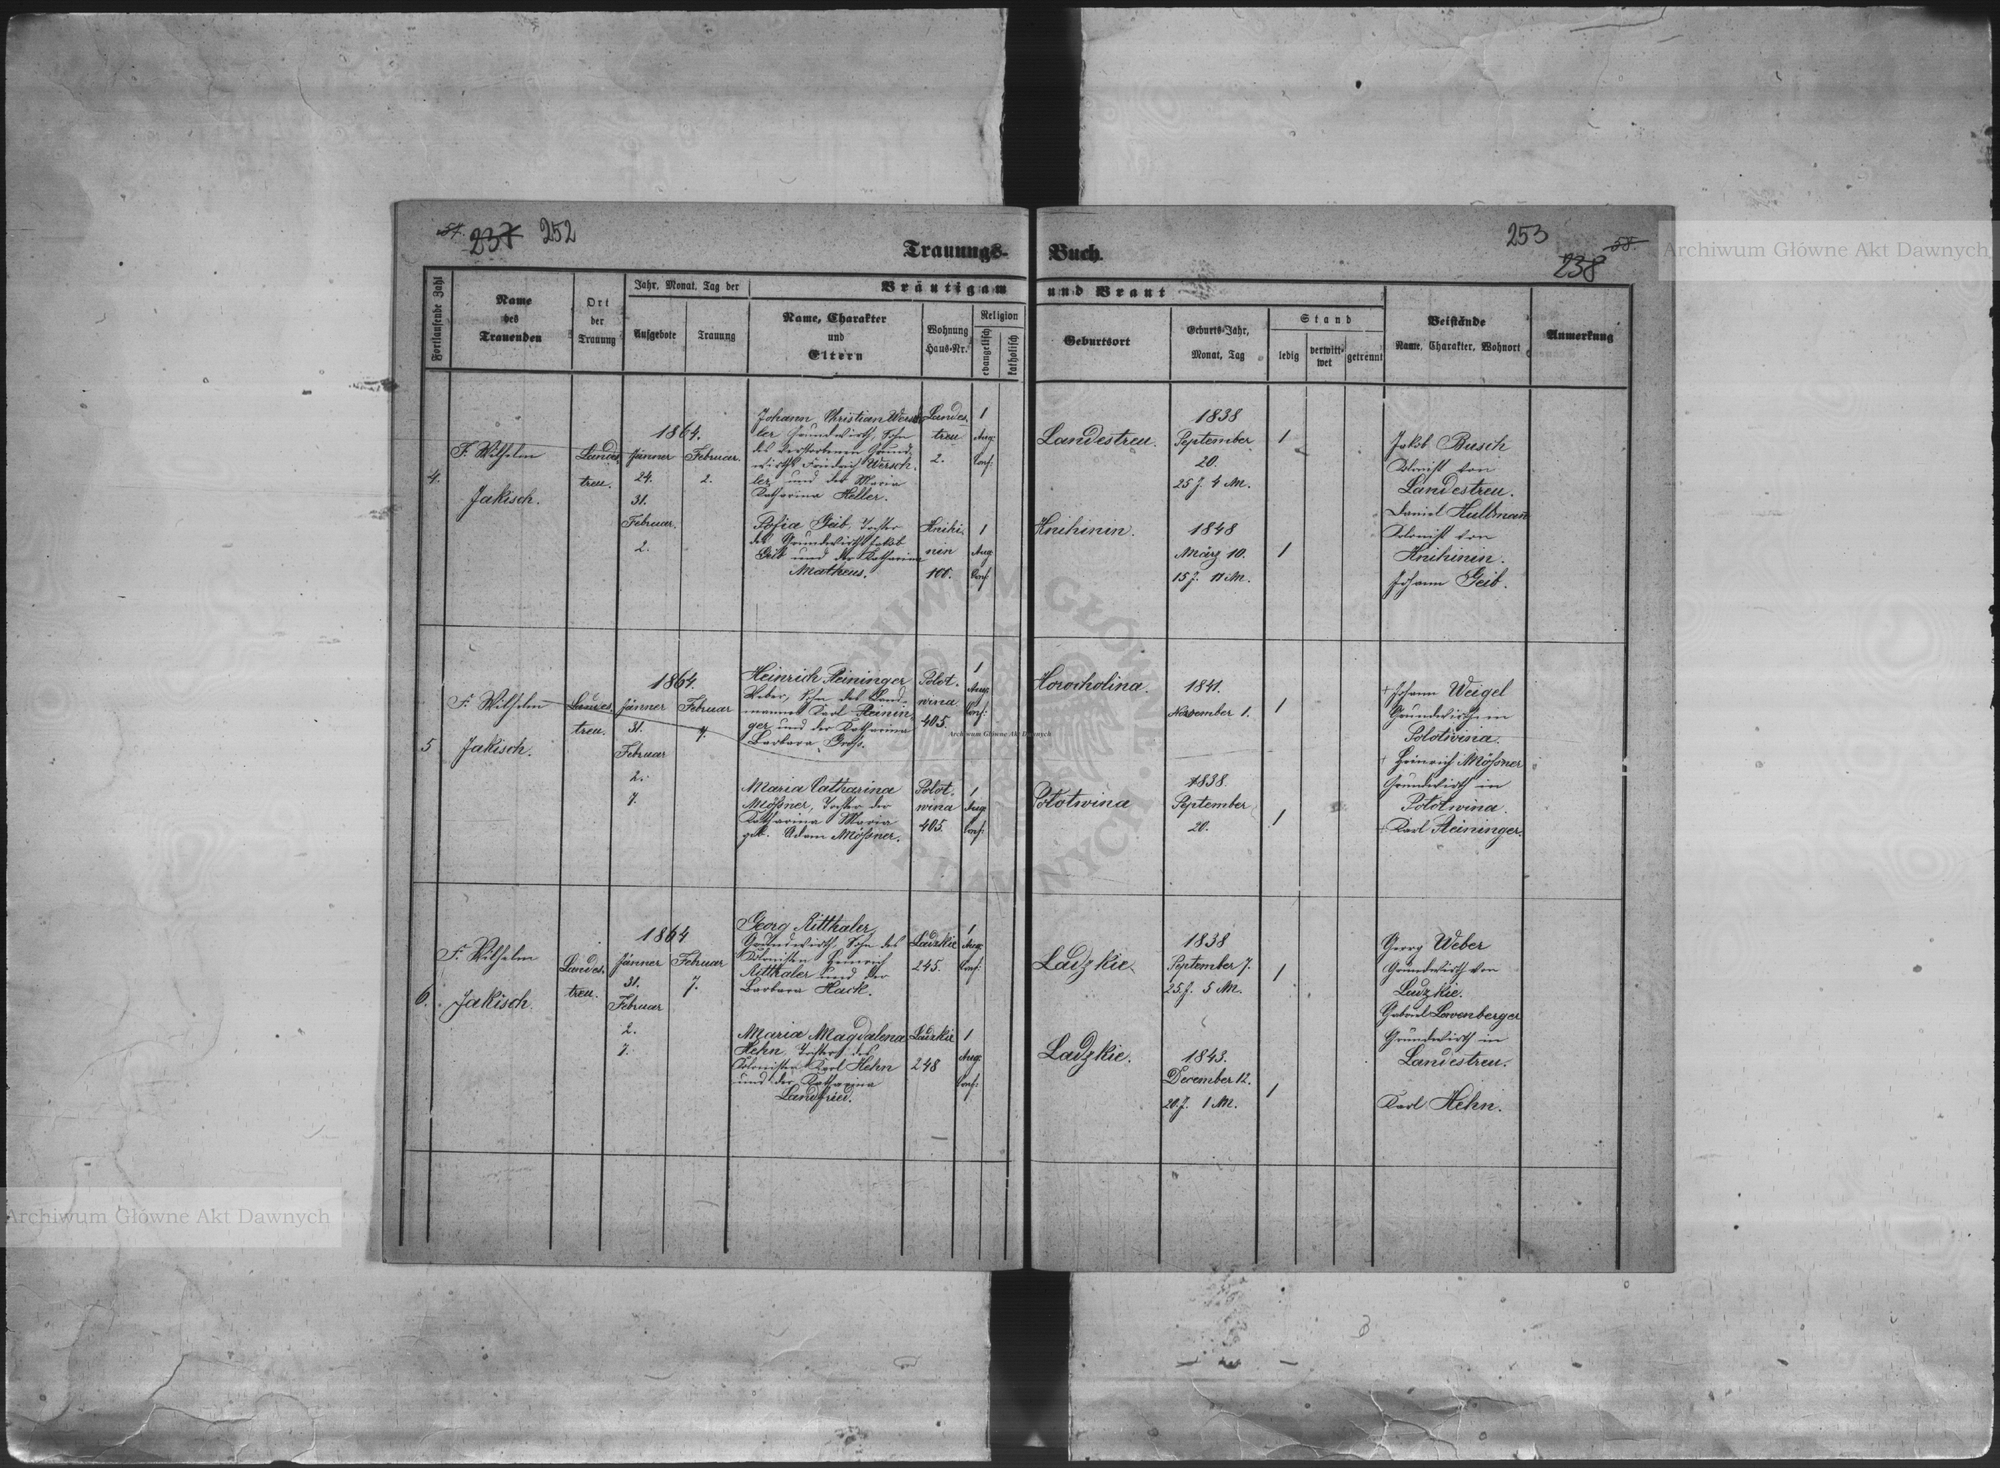 57. 237 252
253 58. 238
Trauungs- Buch.
Fortlaufende Zahl
Name
des
Trauenden
Ort
der
Trauung
Jahr, Monat, Tag der
Aufgebote
Trauung
Bräutigam und Braut
Name, Charakter
und
Eltern
Wohnung
Haus-Nr.
Religion
evangelisch
katholisch
Geburtsort
Geburts-Jahr,
Monat, Tag
Stand
ledig
verwitt-
wet
getrennt
Beistände
Name, Charakter, Wohnort
Anmerkung
4.
F. Wilhelm
Jakisch.
Landes
treu.
1864.
Jänner
24.
31.
Februar.
2.
Februar.
2.
Johann Christian Wersch
ler Grundwirth, Sohn
des verstorbenen Grund-
wirths Friedrich Wersch-
ler und der Maria
Katharina Heller.
Landes
treu
2.
1
Aug:
Conf:
Landestreu.
1838
September
20.
25 J. 4 M.
1
Jakob Busch
Kolonist von
Landestreu.
Daniel Hullman
Kolonist von
Knihinin.
Johann Geib.
Sofia Geib Tochter
des Grundwirths Jakob
Geib und der Katharina
Matheus.
Knihi
nin
100.
1
Aug
Conf:
Knihinin.
1848
März 10.
15 J. 11 M.
1
5
F. Wilhelm
Jakisch.
Landes
treu.
1864.
Jänner
31.
Februar
2.
7.
Februar
7.
Heinrich Reininger
Weber, Sohn des Land-
mannes Karl Reinin
ger und der Katharina
Barbara Groß.
Polot.
wina
405.
1
Aug:
Conf:
Horocholina.
1841.
November 1.
1
+ Johann Weigel
Grundwirth in
Solotwina.
+ Heinrich Mößner
Grundwirth in
Solotwina.
+ Karl Reininger.
Maria Catharina
Mößner, Tochter der
Katharina Maria
geb. Adam Mößner.
Polot.
wina
405.
1
Aug:
Conf:
Solotwina
1838.
September
20.
1
6.
F. Wilhelm
Jakisch.
Landes.
treu.
1864
Jänner
31.
Februar
2.
7.
Februar
7.
Georg Ritthaler,
Grundwirth, Sohn des
Kolonisten Heinrich
Ritthaler und der
Barbara Hack.
Ladzkie
245.
1
Aug:
Conf:
Ladzkie.
1838
September 7.
25 J. 5 M.
1
Georg Weber
Grundwirth von
Ladzkie.
Gabriel Lewenberger
Grundwirth in
Landestreu.
Karl Hehn.
Maria Magdalena
Hehn Tochter des
Kolonisten Karl Hehn
und der Katharina
Landfried.
Ladzkie
248
1
Aug:
Conf:
Ladzkie.
1843.
December 12.
20 J. 1 M.
1
Archiwum Główne Akt Dawnych
Archiwum Główne Akt Dawnych
Archiwum Główne Akt Dawnych
ARCHIWUM GŁÓWNE AKT DAWNYCH